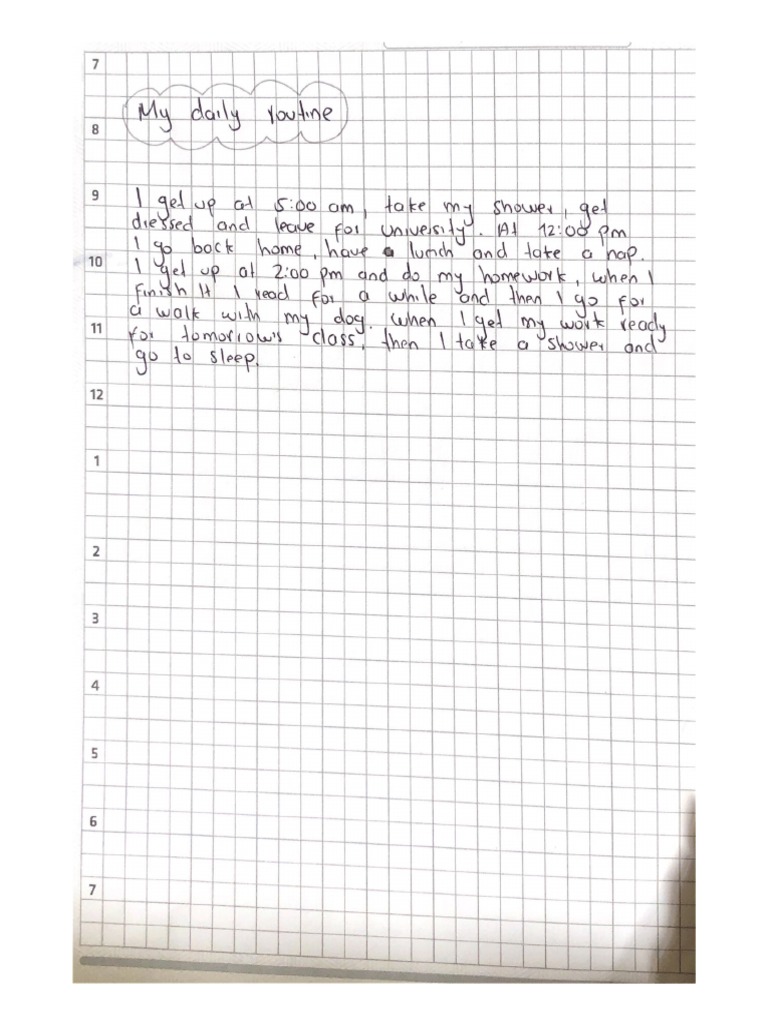 7
My daily routine
8
9
I get up at 5:00 am, take my shower, get
dressed and leave for university. At 12:00 pm
I go back home, have a lunch and take a nap.
10
I get up at 2:00 pm and do my homework, when I
finish it I read for a while and then I go for
a walk with my dog. When I get my work ready
11
for tomorrow's class, then I take a shower and
go to sleep.
12
1
2
3
4
5
6
7